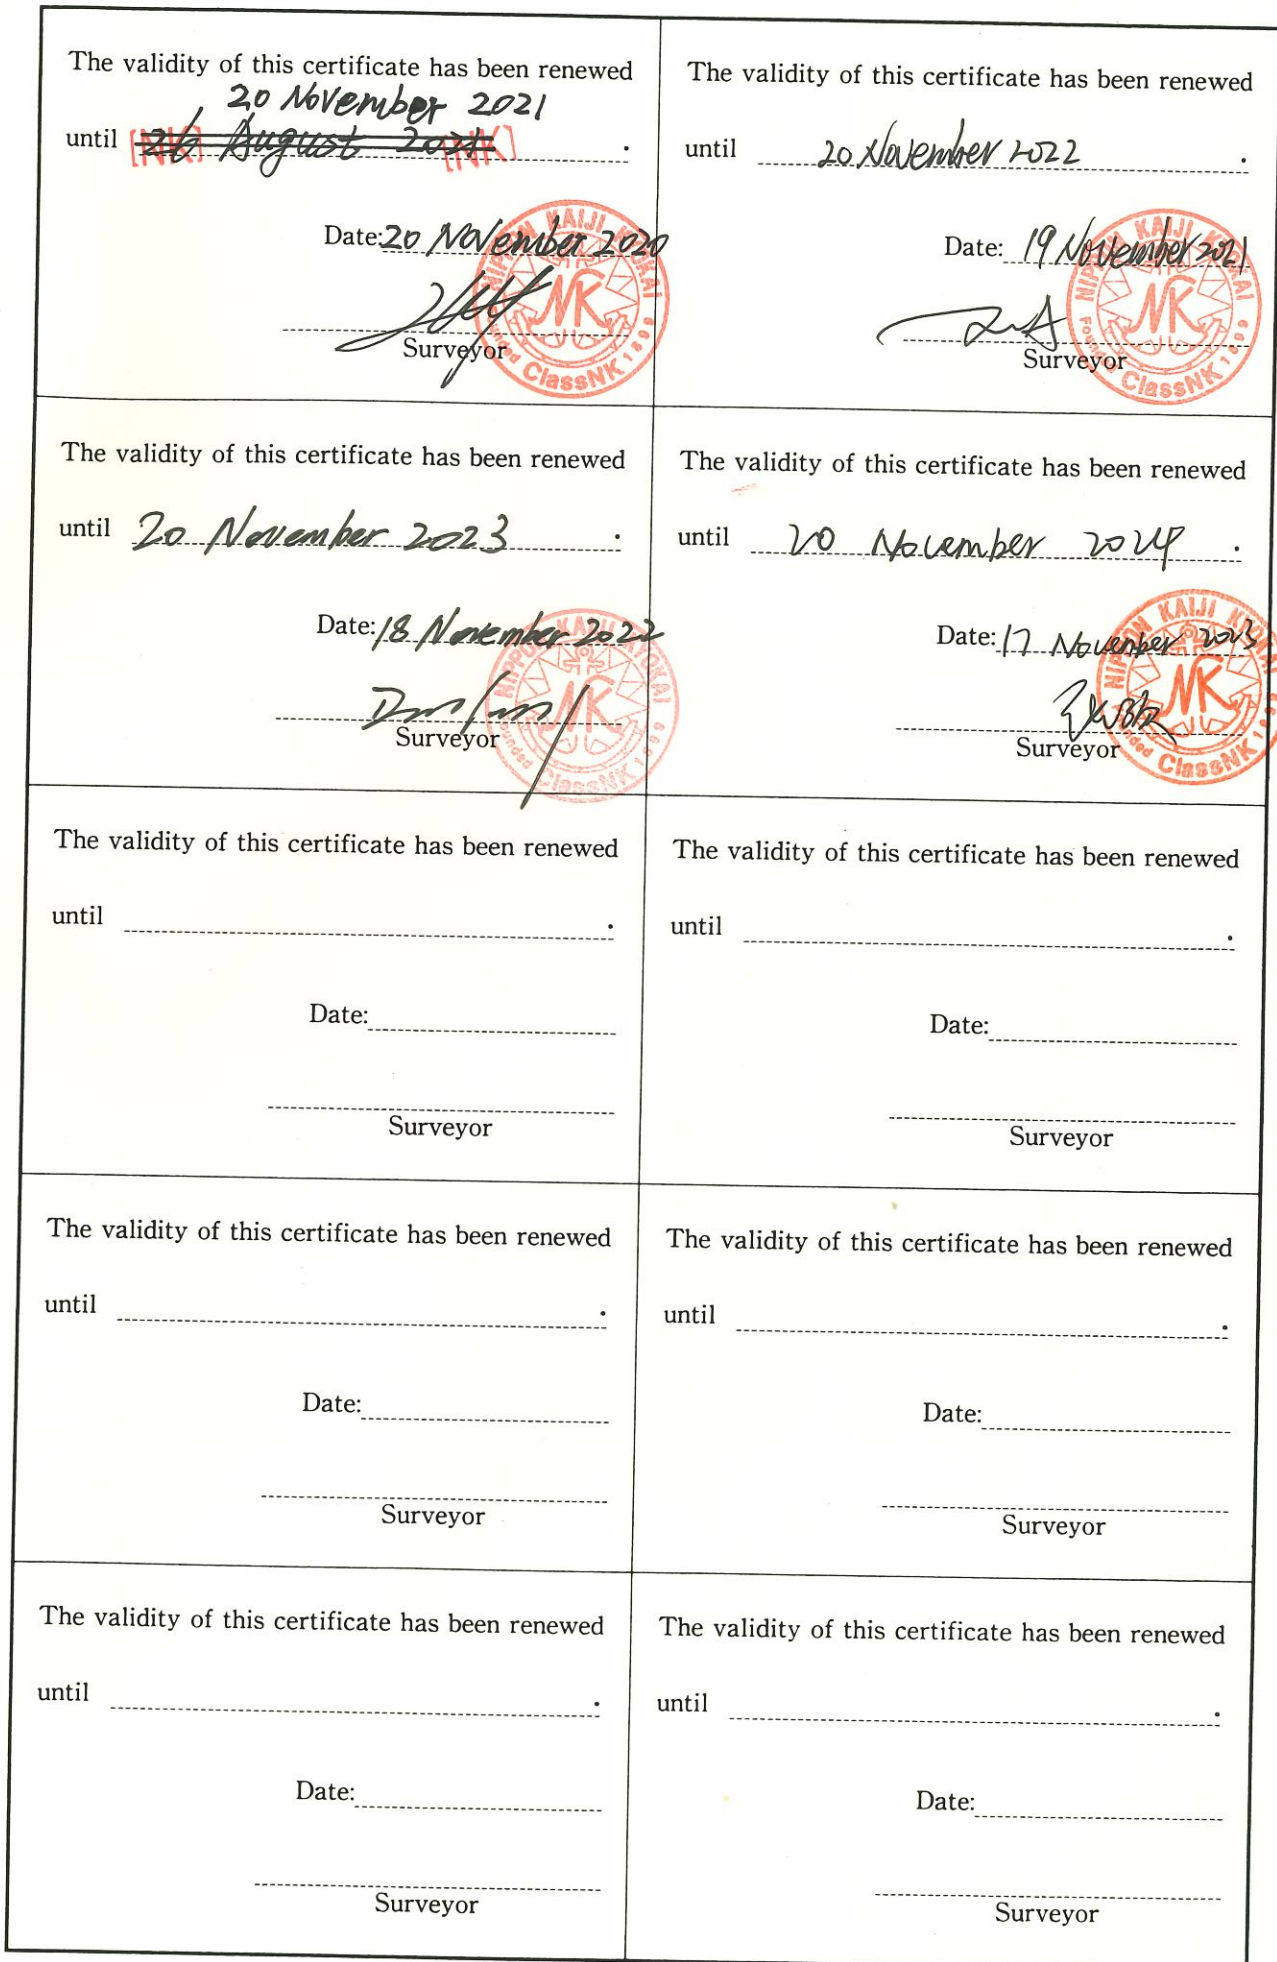 The validity of this certificate has been renewed
20 November 2021
until [NK] 26 August 2021 [NK] .
Date: 20 November 2020
Surveyor
NIPPON KAIJI KYOKAI
NK
Founded ClassNK 1899
The validity of this certificate has been renewed
until 20 November 2022 .
Date: 19 November 2021
Surveyor
NIPPON KAIJI KYOKAI
NK
Founded ClassNK 1899
The validity of this certificate has been renewed
until 20 November 2023 .
Date: 18 November 2022
Surveyor
NIPPON KAIJI KYOKAI
NK
Founded ClassNK 1899
The validity of this certificate has been renewed
until 20 November 2024 .
Date: 17 November 2023
Surveyor
NIPPON KAIJI KYOKAI
NK
Founded ClassNK 1899
The validity of this certificate has been renewed
until .
Date:
Surveyor
The validity of this certificate has been renewed
until .
Date:
Surveyor
The validity of this certificate has been renewed
until .
Date:
Surveyor
The validity of this certificate has been renewed
until .
Date:
Surveyor
The validity of this certificate has been renewed
until .
Date:
Surveyor
The validity of this certificate has been renewed
until .
Date:
Surveyor